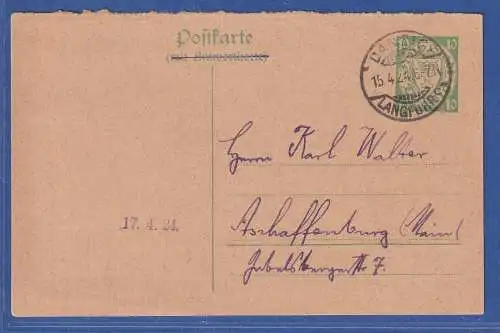 Postkarte
(mit Antwortkarte)
10
10
DANZIG
15.4.24.6-7N
LANGFUHR
Herrn Karl Walter
17. 4. 24.
Aschaffenburg (Main)
Gabelsbergerstr 7.